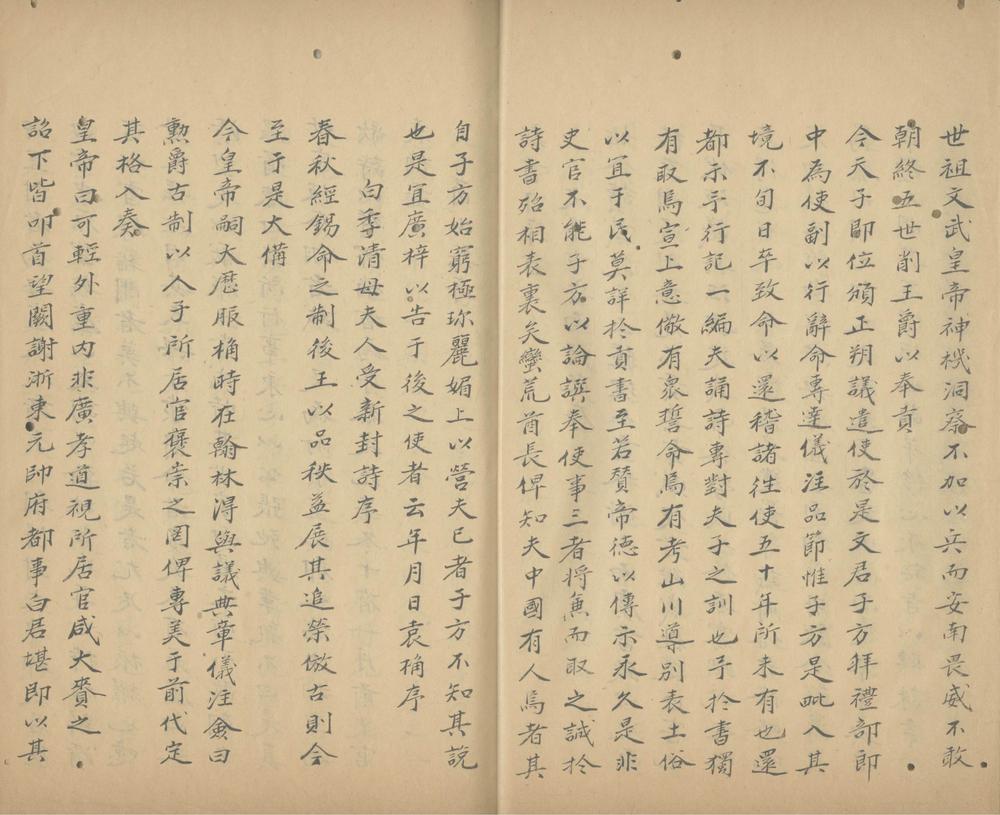 世祖文武皇帝神機洞察不加以兵而安南畏威不敢
朝終五世削王爵以奉貢
今天子即位頒正朔議遣使於是文君子方拜禮部郎
中為使副以行辭命專達儀注品節惟子方是毗入其
境不旬日卒致命以還稽諸徃使五十年所未有也還
都示予行記一編夫誦詩專對夫子之訓也予扵書獨
有取焉宣上意儆有衆誓命焉有考山川導別表土俗
以宜于民莫詳扵貢書至若贊帝德以傳示永久是非
史官不能子方以論譔奉使事三者將兼而取之誠扵
詩書殆相表裏矣蠻荒酋長俾知夫中國有人焉者其
自子方始窮極珎麗媚上以營夫已者子方不知其說
也是宜廣梓以告于後之使者云年月日袁桷序
白季清母夫人受新封詩序
春秋經錫命之制後王以品秩益展其追榮倣古則今
至于是大備
今皇帝嗣大歴服桷時在翰林淂與議典章儀注僉曰
勲爵古制以人子所居官褒崇之罔俾專美于前代定
其格入奏
皇帝曰可輕外重内非廣孝道視所居官咸大賚之
詔下皆叩首望闕謝浙東元帥府都事白君堪即以其